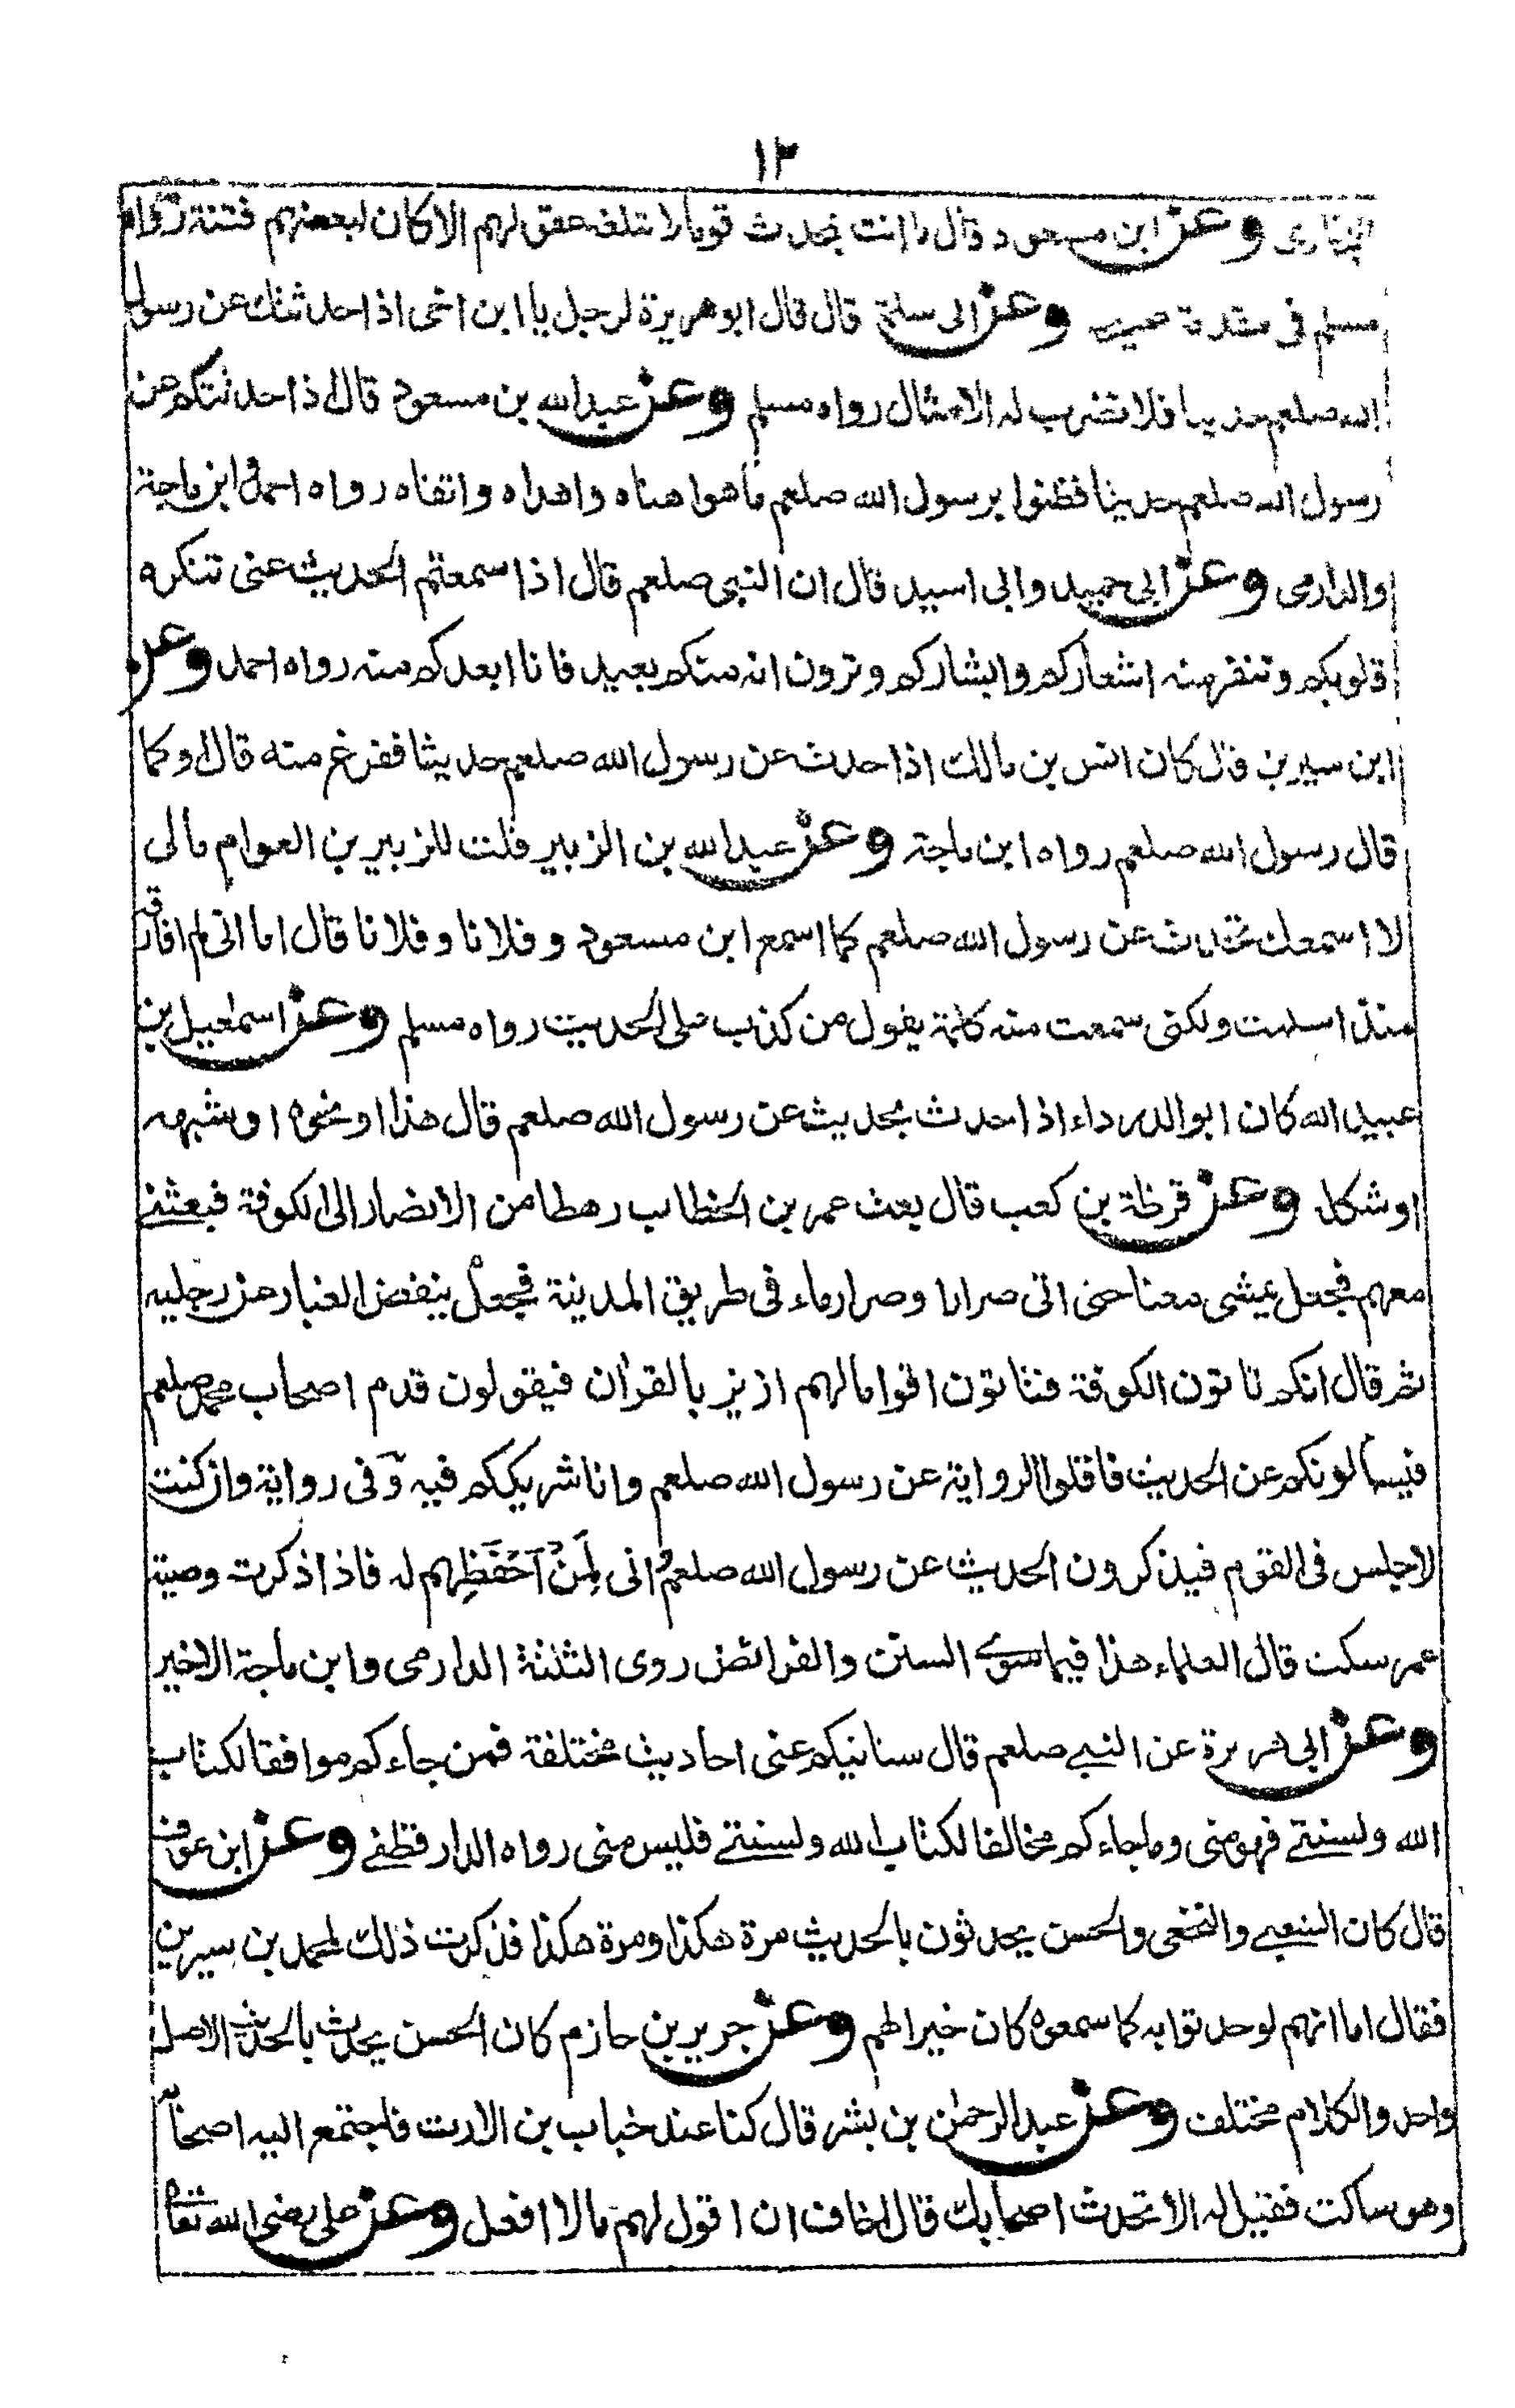 ١٣
البخارى وعن ابن مسعود قال ما انت بمحدث قوما لا تبلغه عقولهم الا كان لبعضهم فتنة رواه
مسلم فى مقدمة صحيحه وعن ابى سلمة قال قال ابو هريرة لرجل يا ابن اخى اذا حدثتك عن رسول
الله صلعم حديثا فلا تضرب له الامثال رواه مسلم وعن عبد الله بن مسعود قال اذا حدثتكم عن
رسول الله صلعم حديثا فظنوا برسول الله صلعم ما هو اهناه واهداه واتقاه رواه احمد وابن ماجة
والدارمى وعن ابى حميد وابى اسيد قال ان النبى صلعم قال اذا سمعتم الحديث عنى تنكره
قلوبكم وتنفر منه اشعاركم وابشاركم وترون انه منكم بعيد فانا ابعدكم منه رواه احمد وعن
ابن سيرين قال كان انس بن مالك اذا حدث عن رسول الله صلعم حديثا ففرغ منه قال او كما
قال رسول الله صلعم رواه ابن ماجة وعن عبد الله بن الزبير قلت للزبير بن العوام مالى
لا اسمعك تحدث عن رسول الله صلعم كما اسمع ابن مسعود وفلانا وفلانا قال اما انى لم افارقه
منذ اسلمت ولكنى سمعت منه كلمة يقول من كذب على الحديث رواه مسلم وعن اسمٰعيل بن
عبيد الله كان ابو الدرداء اذا حدث بحديث عن رسول الله صلعم قال هذا او نحوه او شبهه
او شكله وعن قرظة بن كعب قال بعث عمر بن الخطاب رهطا من الانصار الى الكوفة فبعثنى
معهم فجعل يمشى معنا حتى اتى صرارا وصرار ماء فى طريق المدينة فجعل ينفض الغبار عن رجليه
ثم قال انكم تاتون الكوفة فتاتون اقواما لهم ازيز بالقرآن فيقولون قدم اصحاب محمد صلعم
فيسألونكم عن الحديث فاقلوا الرواية عن رسول الله صلعم وانا شريككم فيه وفى رواية وان كنت
لاجلس فى القوم فيذكرون الحديث عن رسول الله صلعم وانى لَمِنْ اَحْفَظِهم له فاذا ذكرت وصية
عمر سكت قال العلماء هذا فيما سوى السنن والفرائض روى الثلثة الدارمى وابن ماجة الاخير
وعن ابى هريرة عن النبى صلعم قال سياتيكم عنى احاديث مختلفة فمن جاءكم موافقا لكتاب
الله ولسنتى فهو منى وما جاءكم مخالفا لكتاب الله ولسنتى فليس منى رواه الدارقطنى وعن ابن عون
قال كان الشعبى والنخعى والحسن يحدثون بالحديث مرة هكذا ومرة هكذا فذكرت ذلك لمحمد بن سيرين
فقال اما انهم لو حدثوا به كما سمعوه كان خيرا لهم وعن جرير بن حازم كان الحسن يحدث بالحديث الاصل
واحد والكلام مختلف وعن عبد الرحمٰن بن بشر قال كنا عند خباب بن الارت فاجتمع اليه اصحابه
وهو ساكت فقيل له الا تحدث اصحابك قال اخاف ان اقول لهم مالا افعل وعن على رضى الله تعالى